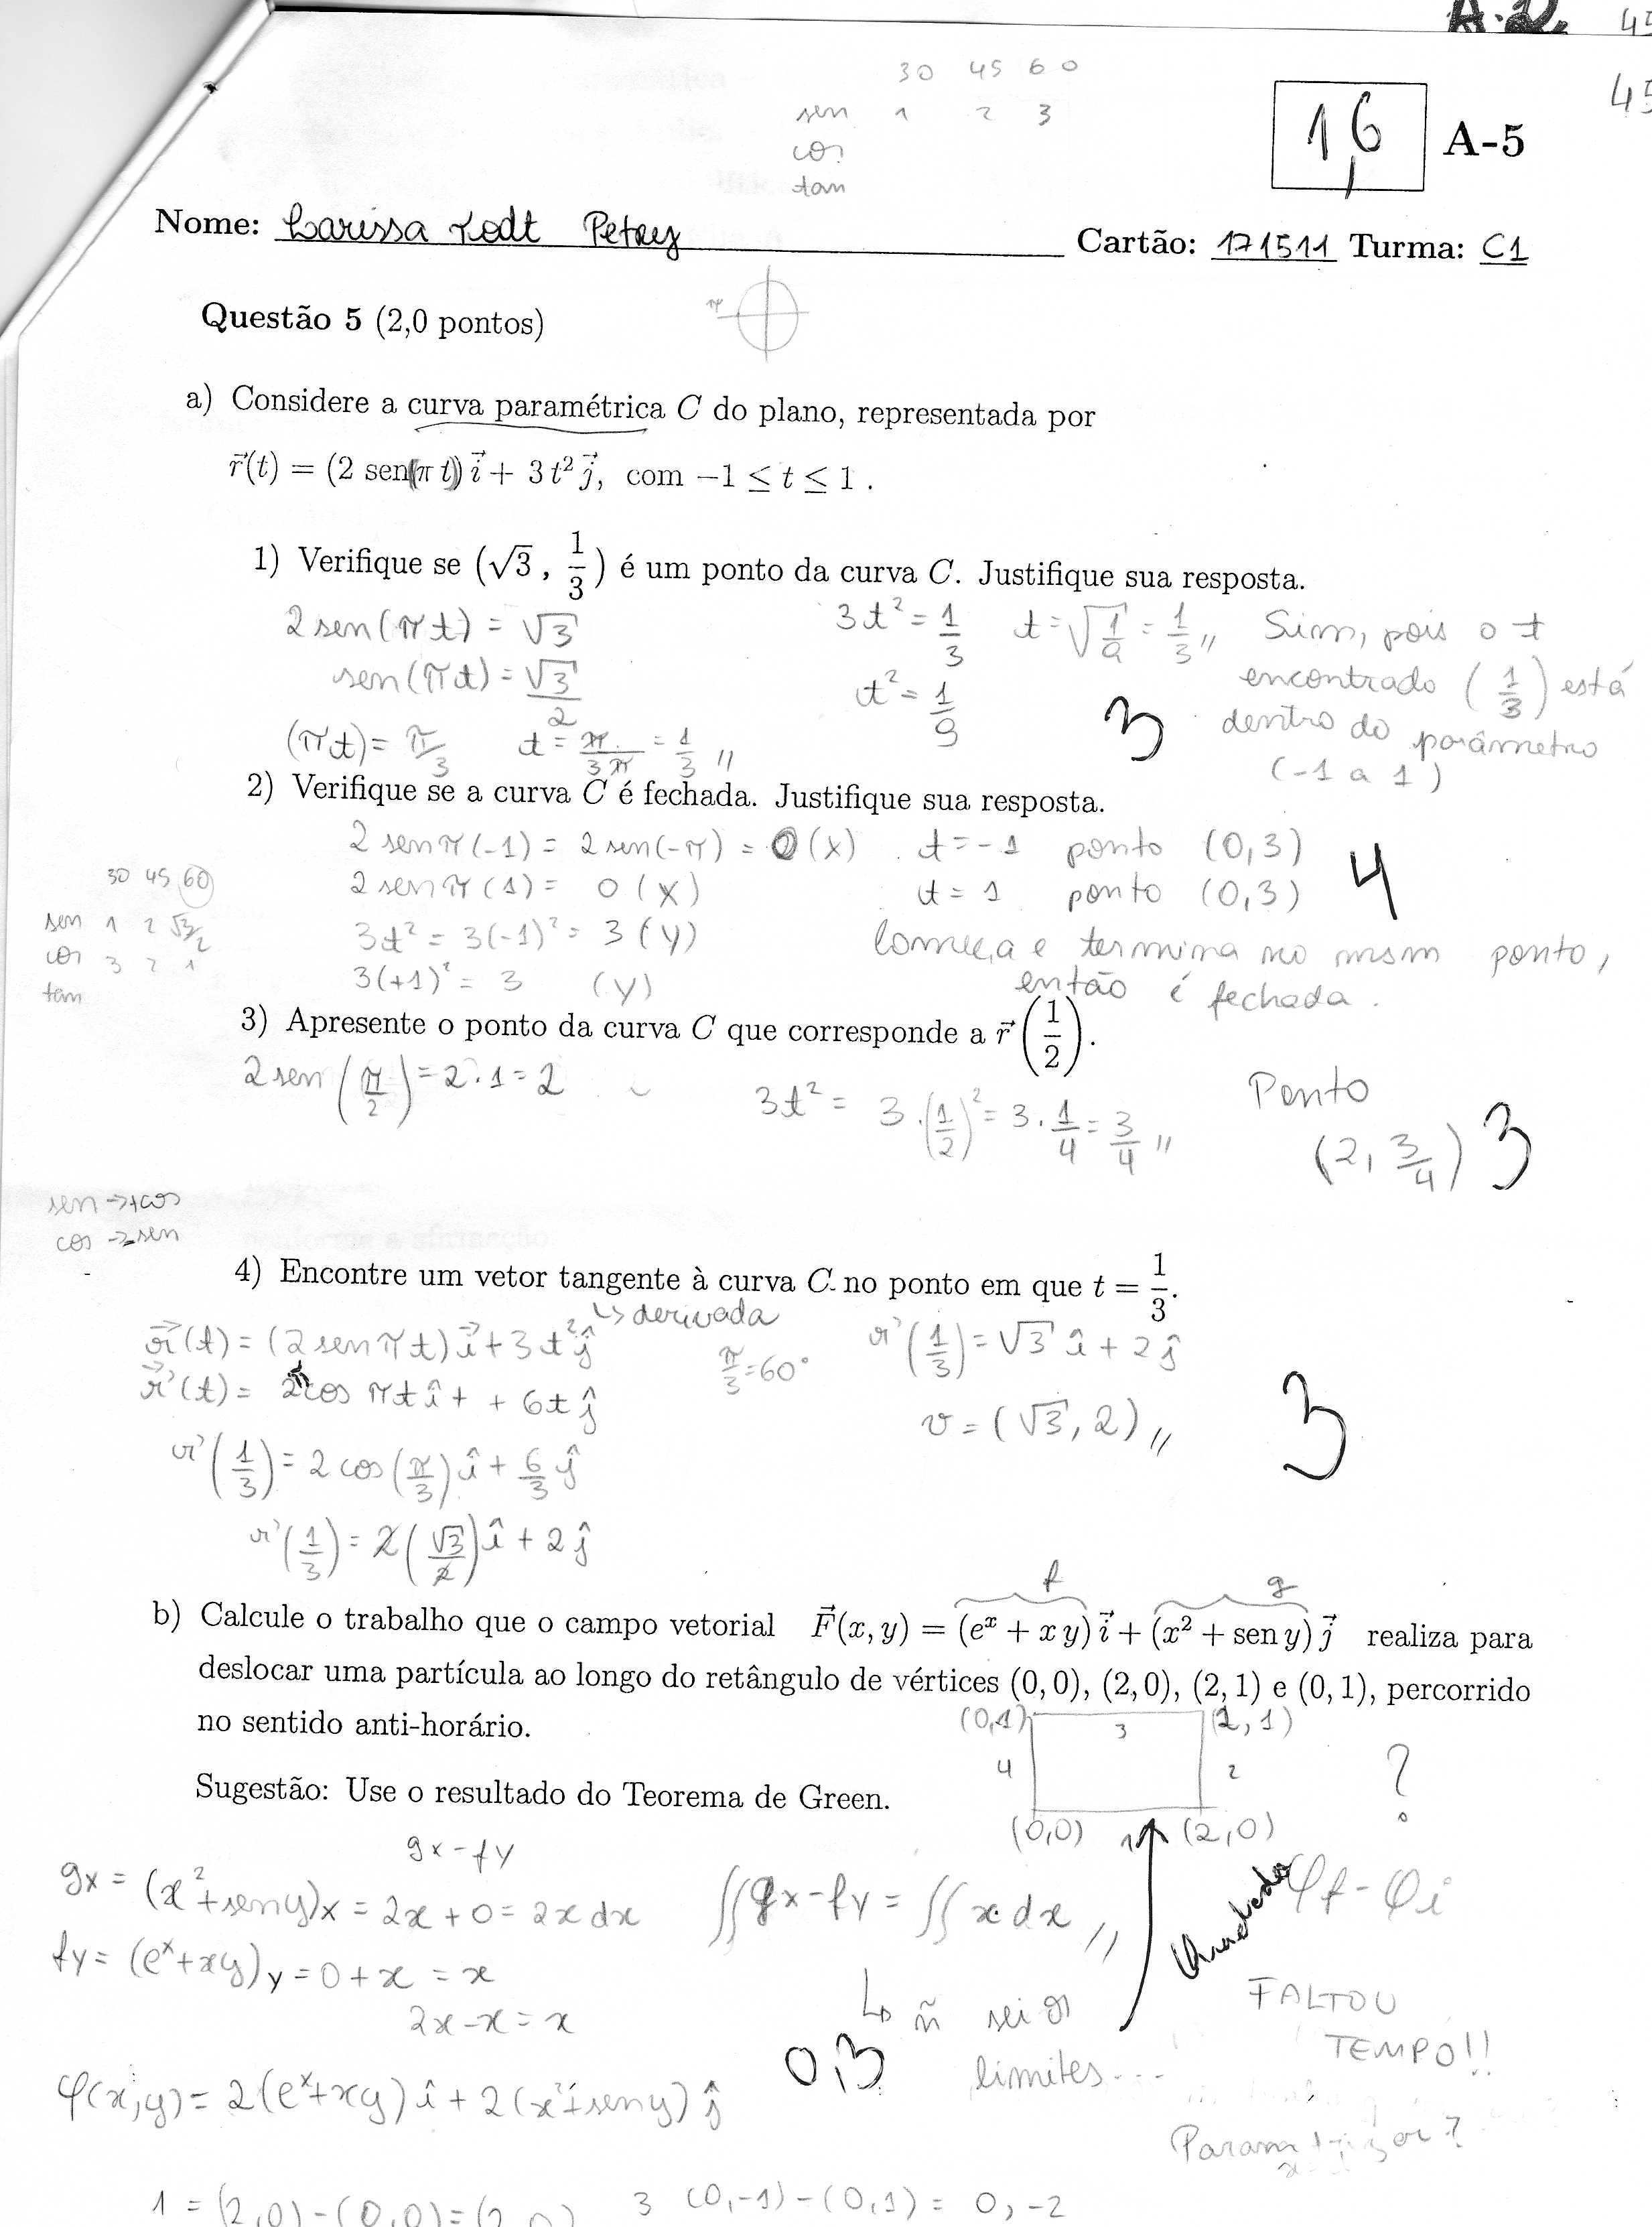 A.2.
30 45 60
sen 1 2 3
cos
tan
1,6 A-5
Nome: Larissa Todt Petry Cartão: 171511 Turma: C1
π
Questão 5 (2,0 pontos)
a) Considere a curva paramétrica C do plano, representada por
r⃗(t) = (2 sen(π t)) i⃗ + 3 t² j⃗, com −1 ≤ t ≤ 1 .
1) Verifique se (√3 , 1/3) é um ponto da curva C. Justifique sua resposta.
2 sen(πt) = √3
sen(πt) = √3/2
(πt) = π/3 t = π/3π = 1/3 //
3t² = 1/3 t = √1/9 = 1/3 //
t² = 1/9
Sim, pois o t
encontrado (1/3) está
dentro do parâmetro
(-1 a 1)
3
2) Verifique se a curva C é fechada. Justifique sua resposta.
2 sen π(-1) = 2 sen(-π) = 0 (x) t = -1 ponto (0,3)
2 sen π(1) = 0 (x) t = 1 ponto (0,3)
4
3t² = 3(-1)² = 3 (y)
3(+1)² = 3 (y)
Começa e termina no msm ponto,
então é fechada.
30 45 60
sen 1 2 √3/2
cos 3 2 1
tam
3) Apresente o ponto da curva C que corresponde a r⃗(1/2).
2 sen(π/2) = 2.1 = 2 3t² = 3.(1/2)² = 3.1/4 = 3/4 //
Ponto
(2, 3/4) 3
sen → +cos
cos → -sen
4) Encontre um vetor tangente à curva C no ponto em que t = 1/3.
↳ derivada
r⃗(t) = (2 sen πt) i⃗ + 3t² ĵ
r⃗'(t) = 2 cos πt î + + 6t ĵ
r'(1/3) = 2 cos(π/3) î + 6/3 ĵ
r'(1/3) = 2(√3/2) î + 2 ĵ
π/3 = 60°
r'(1/3) = √3 î + 2 ĵ
v = (√3, 2) //
3
f g
b) Calcule o trabalho que o campo vetorial F⃗(x, y) = (eˣ + x y) i⃗ + (x² + sen y) j⃗ realiza para
deslocar uma partícula ao longo do retângulo de vértices (0, 0), (2, 0), (2, 1) e (0, 1), percorrido
no sentido anti-horário.
(0,1) 3 (2,1)
4 2 ?
(0,0) 1 (2,0)
Sugestão: Use o resultado do Teorema de Green.
gx - fy
gx = (x² + sen y)x = 2x + 0 = 2x dx
fy = (eˣ + xy)y = 0 + x = x
2x - x = x
∬ gx - fy = ∬ x dx //
↳ ñ sei os
limites...
0,3
φf - φi
FALTOU
TEMPO!!
φ(x,y) = 2(eˣ + xy) î + 2(x² + sen y) ĵ
1 = (2,0) - (0,0) = (2,0)
3 (0,-1) - (0,1) = 0, -2